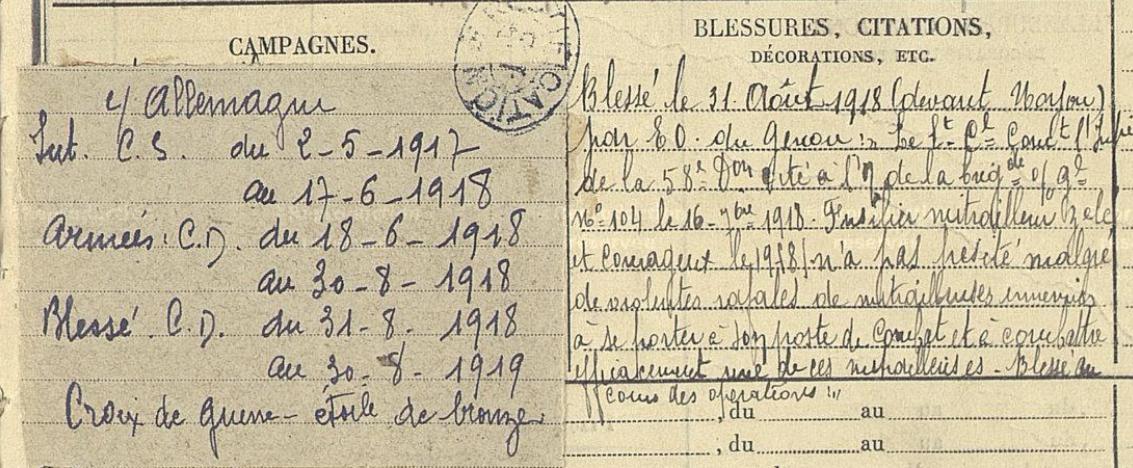 CAMPAGNES.
c/ Allemagne
Int. C.S. du 2-5-1917
au 17-6-1918
Armées: C.D. du 18-6-1918
au 30-8-1918
Blessé. C.D. du 31-8-1918
au 30-8-1919
Croix de guerre - étoile de bronze.
BLESSURES, CITATIONS,
DÉCORATIONS, ETC.
Blessé le 31 Août 1918 (devant Noyon)
par E.O. du Genou: Le Lt Cl Comt l'Infie
de la 58e Don cité à l'O de la brigde o/ gl
no 104 le 16-7bre 1918. Fusilier mitrailleur zélé
et courageux le n'a pas hésité malgré
de violentes rafales de mitrailleuses ennemies
à se porter à son poste de combat et à combattre
efficacement une de ces mitrailleuses - Blessé au
cours des opérations
, du au
, du au